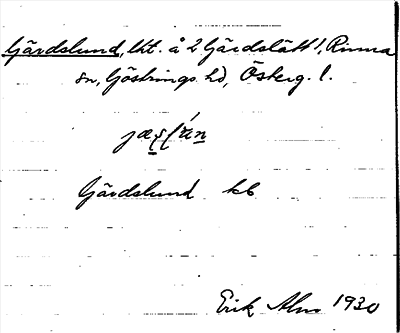 Gärdslund, lht. å 2 Gärdslätt!, Rinna
sn, Göstrings hd, Österg. l.
Gärdslund kb
Erik Alm 1930